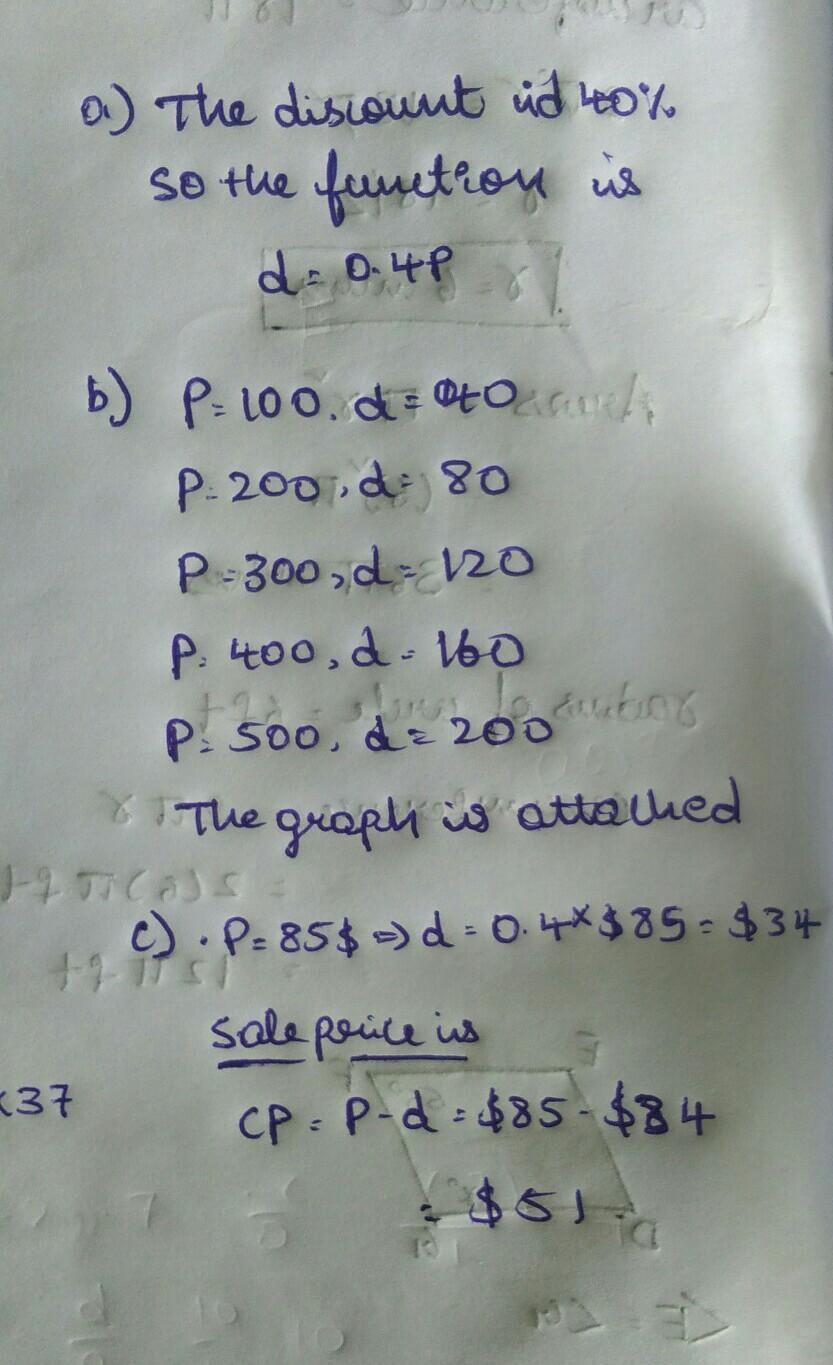 a.) The discount id 40%
so the function is
d = 0.4P
b) P = 100, d = 40
P = 200, d = 80
P = 300, d = 120
P = 400, d = 160
P = 500, d = 200
The graph is attached
c) . P = 85$ ⇒ d = 0.4 × $85 = $34
Sale price is
<37
CP = P - d = $85 - $34
= $51